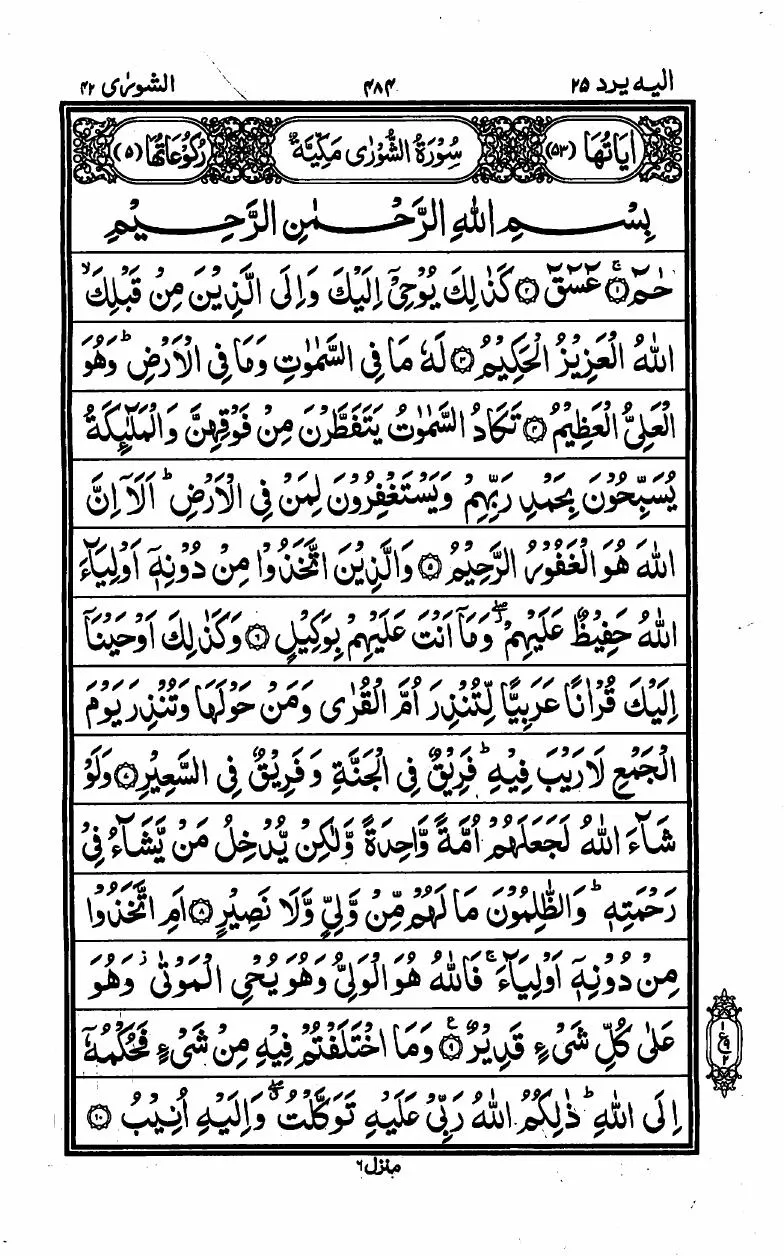 اليه يرد ٢٥
٤٨٤
الشورٰى ٤٢
اٰيَاتُهَا (٥٣)
سُوْرَةُ الشُّوْرٰى مَكِّيَّةٌ
رُكُوْعَاتُهَا (٥)
بِسْمِ اللّٰهِ الرَّحْمٰنِ الرَّحِيْمِ
حٰمٓ ۚ﴿١﴾ عٓسٓقٓ ﴿٢﴾ كَذٰلِكَ يُوْحِىْٓ اِلَيْكَ وَاِلَى الَّذِيْنَ مِنْ قَبْلِكَ ۙ
اللّٰهُ الْعَزِيْزُ الْحَكِيْمُ ﴿٣﴾ لَهٗ مَا فِى السَّمٰوٰتِ وَمَا فِى الْاَرْضِ ؕ وَهُوَ
الْعَلِىُّ الْعَظِيْمُ ﴿٤﴾ تَكَادُ السَّمٰوٰتُ يَتَفَطَّرْنَ مِنْ فَوْقِهِنَّ وَالْمَلٰٓئِكَةُ
يُسَبِّحُوْنَ بِحَمْدِ رَبِّهِمْ وَيَسْتَغْفِرُوْنَ لِمَنْ فِى الْاَرْضِ ؕ اَلَاۤ اِنَّ
اللّٰهَ هُوَ الْغَفُوْرُ الرَّحِيْمُ ﴿٥﴾ وَالَّذِيْنَ اتَّخَذُوْا مِنْ دُوْنِهٖۤ اَوْلِيَآءَ
اللّٰهُ حَفِيْظٌ عَلَيْهِمْ ۖ وَمَاۤ اَنْتَ عَلَيْهِمْ بِوَكِيْلٍ ﴿٦﴾ وَكَذٰلِكَ اَوْحَيْنَاۤ
اِلَيْكَ قُرْاٰنًا عَرَبِيًّا لِّتُنْذِرَ اُمَّ الْقُرٰى وَمَنْ حَوْلَهَا وَتُنْذِرَ يَوْمَ
الْجَمْعِ لَا رَيْبَ فِيْهِ ؕ فَرِيْقٌ فِى الْجَنَّةِ وَفَرِيْقٌ فِى السَّعِيْرِ ﴿٧﴾ وَلَوْ
شَآءَ اللّٰهُ لَجَعَلَهُمْ اُمَّةً وَّاحِدَةً وَّلٰكِنْ يُّدْخِلُ مَنْ يَّشَآءُ فِىْ
رَحْمَتِهٖ ؕ وَالظّٰلِمُوْنَ مَا لَهُمْ مِّنْ وَّلِىٍّ وَّلَا نَصِيْرٍ ﴿٨﴾ اَمِ اتَّخَذُوْا
مِنْ دُوْنِهٖۤ اَوْلِيَآءَ ۚ فَاللّٰهُ هُوَ الْوَلِىُّ وَهُوَ يُحْىِ الْمَوْتٰى ۫ وَهُوَ
عَلٰى كُلِّ شَىْءٍ قَدِيْرٌ ﴿٩﴾ وَمَا اخْتَلَفْتُمْ فِيْهِ مِنْ شَىْءٍ فَحُكْمُهٗۤ
اِلَى اللّٰهِ ؕ ذٰلِكُمُ اللّٰهُ رَبِّىْ عَلَيْهِ تَوَكَّلْتُ ۖ وَاِلَيْهِ اُنِيْبُ ﴿١٠﴾
١
ع ٩
٢
منزل ٦